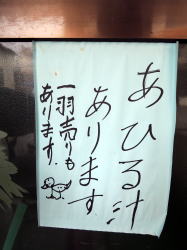 あひる汁
あります
一羽売りも
あります.